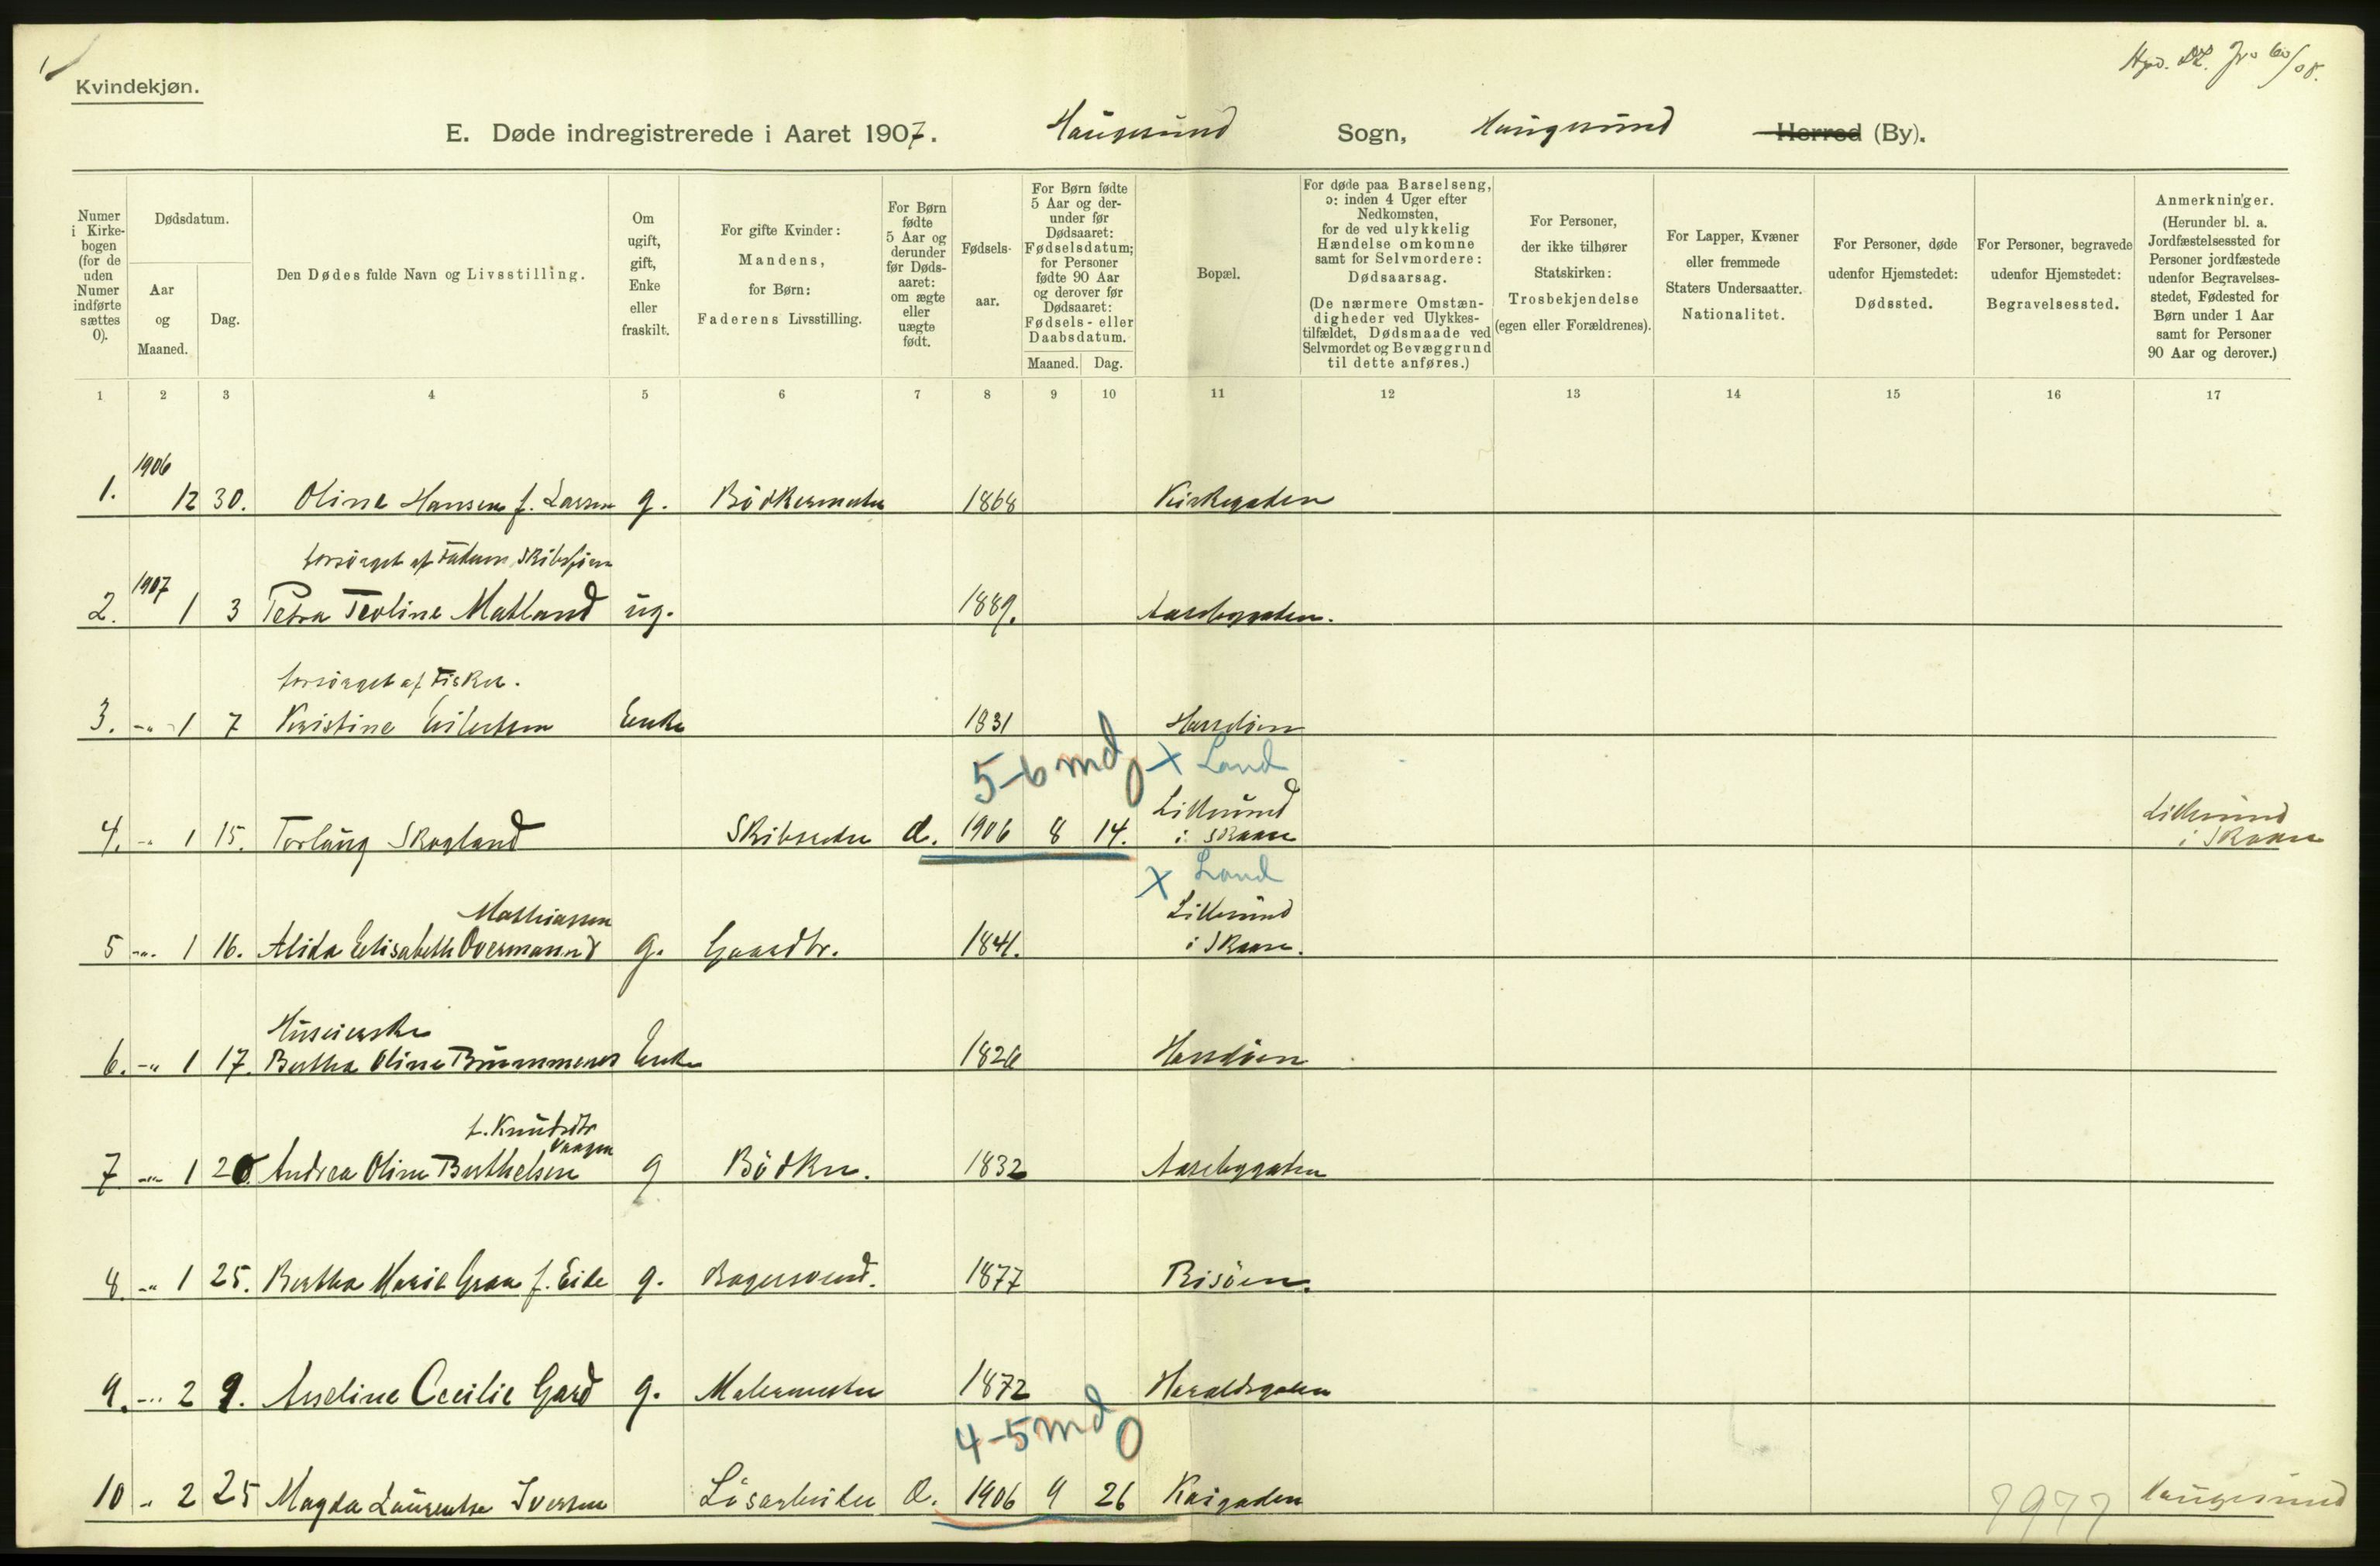 Kvindekjøn.
E. Døde indregistrerede i Aaret 1907. Haugesund Sogn, Haugesund Herred (By).
Numer i Kirkebogen (for de uden Numer indførte sættes 0).
Dødsdatum.
Aar og Maaned.
Dag.
Den Dødes fulde Navn og Livsstilling.
Om ugift, gift, Enke eller fraskilt.
For gifte Kvinder: Mandens, for Børn: Faderens Livsstilling.
For Børn fødte 5 Aar og derunder før Dødsaaret: om ægte eller uægte født.
Fødselsaar.
For Børn fødte 5 Aar og derunder før Dødsaaret: Fødselsdatum; for Personer fødte 90 Aar og derover før Dødsaaret: Fødsels- eller Daabsdatum.
Maaned. Dag.
Bopæl.
For døde paa Barselseng, ɔ: inden 4 Uger efter Nedkomsten, for de ved ulykkelig Hændelse omkomne samt for Selvmordere: Dødsaarsag.
(De nærmere Omstændigheder ved Ulykkestilfældet, Dødsmaade ved Selvmordet og Bevæggrund til dette anføres.)
For Personer, der ikke tilhører Statskirken: Trosbekjendelse (egen eller Forældrenes).
For Lapper, Kvæner eller fremmede Staters Undersaatter. Nationalitet.
For Personer, døde udenfor Hjemstedet: Dødssted.
For Personer, begravede udenfor Hjemstedet: Begravelsessted.
Anmerkninger.
(Herunder bl. a. Jordfæstelsessted for Personer jordfæstede udenfor Begravelsesstedet, Fødested for Børn under 1 Aar samt for Personer 90 Aar og derover.)
1 2 3 4 5 6 7 8 9 10 11 12 13 14 15 16 17
1906
1. 12 30. Oline Hansen f. Larsen g. Bödkermester 1868 Kirkegaden
forsörget af Faderen, Skibstömm
1907
2. 1 3 Petra Teoline Matland ug. 1889. Aasebygaden.
forsörget af Fisker.
3. -"- 1 7 Kristine Eilertsen Enke 1831 Hasselöen
5-6 md 0 X Land
Lillesund
4. -"- 1 15. Torlaug Skogland Skibsreder æ. 1906 8 14. i Skaare
Lillesund
i Skaare
X Land
Mathiassen
Lillesund
5 -"- 1 16. Alida Elisabeth Overmannd g. Gaardbr. 1841. i Skaare.
Huseierske
6. -"- 1 17. Bertha Oline Brummenes Enke 1826 Hasselöen
f. Knutsdtr
Vaagen
7 -"- 1 20 Andrea Oline Berthelsen g Bödker. 1832 Aasebygaden
8. -"- 1 25. Bertha Marie Graa f. Eide g. Bagersvend. 1877 Risöen.
9. -"- 2 9. Anseline Cecilie Gard g. Malermester 1872 Haraldsgaden
4-5 md 0
10 -"- 2 25 Magda Laurentse Iversen Lösarbeider æ. 1906 9 26 Kaigaden Haugesund
7977